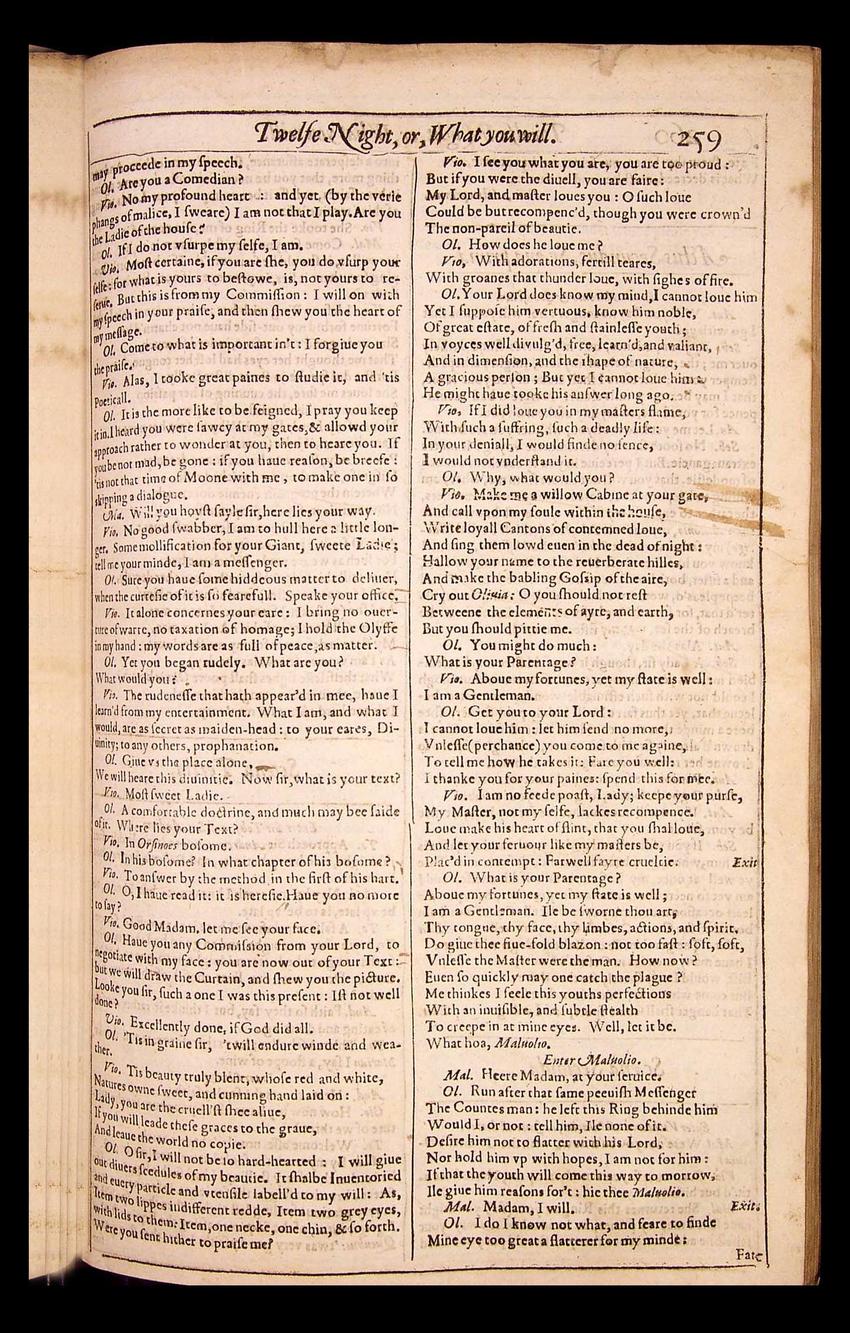 Twelfe Night, or, What you will. 259
may proceede in my speech.
Ol. Are you a Comedian?
Vio. No my profound heart : and yet (by the verie
phangs of malice, I sweare) I am not that I play. Are you
the Ladie of the house?
Ol. If I do not vsurpe my selfe, I am.
Vio. Most certaine, if you are she, you do vsurp your
selfe: for what is yours to bestowe, is, not yours to re-
serue. But this is from my Commission: I will on with
my speech in your praise, and then shew you the heart of
my message.
Ol. Come to what is important in't: I forgiue you
the praise.
Vio. Alas, I tooke great paines to studie it, and 'tis
Poeticall.
Ol. It is the more like to be feigned, I pray you keep
it in. I heard you were sawcy at my gates, & allowd your
approach rather to wonder at you, then to heare you. If
you be not mad, be gone: if you haue reason, be breefe:
'tis not that time of Moone with me, to make one in so
skipping a dialogue.
Ma. Will you hoyst sayle sir, here lies your way.
Vio. No good swabber, I am to hull here a little lon-
ger. Some mollification for your Giant, sweete Ladie;
tell me your minde, I am a messenger.
Ol. Sure you haue some hiddeous matter to deliuer,
when the curtesie of it is so fearefull. Speake your office.
Vio. It alone concernes your eare: I bring no ouer-
ture of warre, no taxation of homage; I hold the Olyffe
in my hand: my words are as full of peace, as matter.
Ol. Yet you began rudely. What are you?
What would you?
Vio. The rudenesse that hath appear'd in mee, haue I
learn'd from my entertainment. What I am, and what I
would, are as secret as maiden-head: to your eares, Di-
uinity; to any others, prophanation.
Ol. Giue vs the place alone,
We will heare this diuinitie. Now sir, what is your text?
Vio. Most sweet Ladie.
Ol. A comfortable doctrine, and much may bee saide
of it. Where lies your Text?
Vio. In Orsinoes bosome.
Ol. In his bosome? In what chapter of his bosome?
Vio. To answer by the method in the first of his hart.
Ol. O, I haue read it: it is heresie. Haue you no more
to say?
Vio. Good Madam, let me see your face.
Ol. Haue you any Commission from your Lord, to
negotiate with my face: you are now out of your Text:
but we will draw the Curtain, and shew you the picture.
Looke you sir, such a one I was this present: Ist not well
done?
Vio. Excellently done, if God did all.
Ol. 'Tis in graine sir, 'twill endure winde and wea-
ther.
Vio. Tis beauty truly blent, whose red and white,
Natures owne sweet, and cunning hand laid on:
Lady, you are the cruell'st shee aliue,
If you will leade these graces to the graue,
And leaue the world no copie.
Ol. O sir, I will not be so hard-hearted : I will giue
out diuers scedules of my beautie. It shalbe Inuentoried
and euery particle and vtensile labell'd to my will: As,
Item two lippes indifferent redde, Item two grey eyes,
with lids to them: Item, one necke, one chin, & so forth.
Were you sent hither to praise me?
Vio. I see you what you are, you are too proud:
But if you were the diuell, you are faire:
My Lord, and master loues you: O such loue
Could be but recompenc'd, though you were crown'd
The non-pareil of beautie.
Ol. How does he loue me?
Vio, With adorations, fertill teares,
With groanes that thunder loue, with sighes of fire.
Ol. Your Lord does know my mind, I cannot loue him
Yet I suppose him vertuous, know him noble,
Of great estate, of fresh and stainlesse youth;
In voyces well divulg'd, free, learn'd, and valiant,
And in dimension, and the shape of nature,
A gracious person; But yet I cannot loue him:
He might haue tooke his answer long ago.
Vio, If I did loue you in my masters flame,
With such a suffring, such a deadly life:
In your deniall, I would finde no sence,
I would not vnderstand it.
Ol. Why, what would you?
Vio. Make me a willow Cabine at your gate,
And call vpon my soule within the house,
Write loyall Cantons of contemned loue,
And sing them lowd euen in the dead of night:
Hallow your name to the reuerberate hilles,
And make the babling Gossip of the aire,
Cry out Oliuia: O you should not rest
Betweene the elements of ayre, and earth,
But you should pittie me.
Ol. You might do much:
What is your Parentage?
Vio. Aboue my fortunes, yet my state is well:
I am a Gentleman.
Ol. Get you to your Lord:
I cannot loue him: let him send no more,
Vnlesse (perchance) you come to me againe,
To tell me how he takes it: Fare you well:
I thanke you for your paines: spend this for mee.
Vio. I am no feede poast, Lady; keepe your purse,
My Master, not my selfe, lackes recompence.
Loue make his heart of flint, that you shal loue,
And let your feruour like my masters be,
Plac'd in contempt: Farwell fayre crueltie. Exit
Ol. What is your Parentage?
Aboue my fortunes, yet my state is well;
I am a Gentleman. Ile be sworne thou art,
Thy tongue, thy face, thy limbes, actions, and spirit,
Do giue thee fiue-fold blazon: not too fast: soft, soft,
Vnlesse the Master were the man. How now?
Euen so quickly may one catch the plague?
Me thinkes I feele this youths perfections
With an inuisible, and subtle stealth
To creepe in at mine eyes. Well, let it be.
What hoa, Maluolio.
Enter Maluolio.
Mal. Heere Madam, at your seruice.
Ol. Run after that same peeuish Messenger
The Countes man: he left this Ring behinde him
Would I, or not: tell him, Ile none of it.
Desire him not to flatter with his Lord,
Nor hold him vp with hopes, I am not for him:
If that the youth will come this way to morrow,
Ile giue him reasons for't: hie thee Maluolio.
Mal. Madam, I will. Exit.
Ol. I do I know not what, and feare to finde
Mine eye too great a flatterer for my minde:
Fate